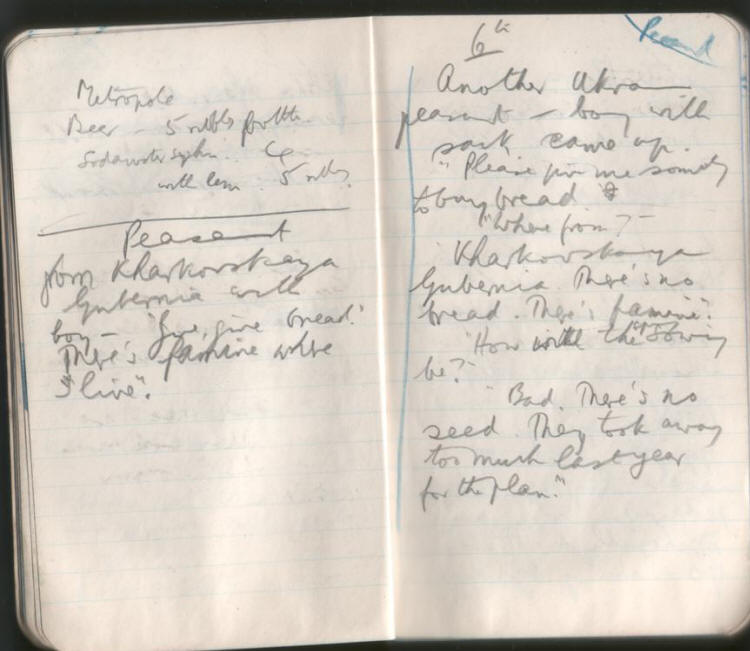 Metropole
Beer – 5 roubles bottle
Sodawater syphon .. 4
with lem . 5 roubles.
Peasant
from Kharkovskaya
Gubernia with
boy – "Give, give bread.
There's famine where
I live".
Peasant
6th
Another Ukra
peasant – boy with
sack came up.
"Please give me something
to buy bread
"Where from?"
Kharkovskaya
Gubernia. There's no
bread. There's famine".
"How will the sowing
be?"
"Bad. There's no
seed. They took away
too much last year
for the plan."